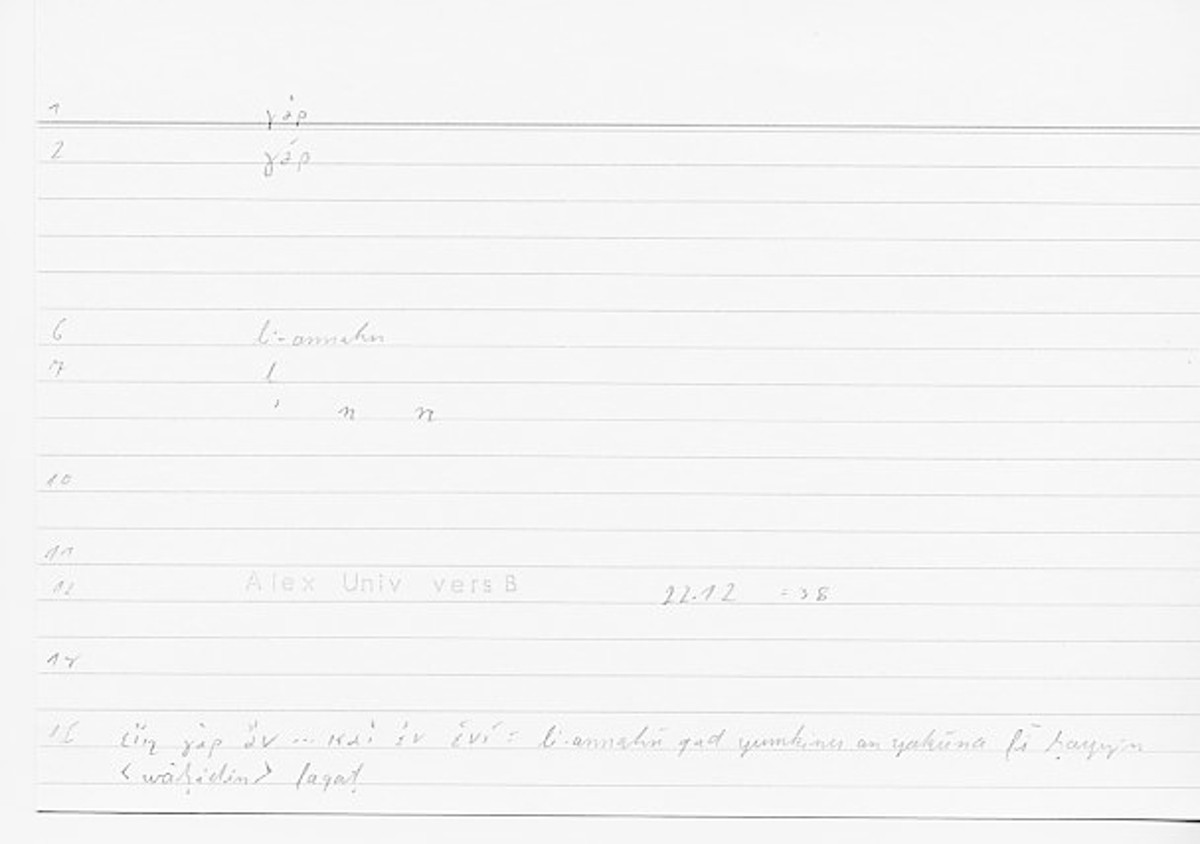 1 γὰρ
2 γάρ
6 li-annahu
7 l
ʾ n n
10
11
12 Alex Univ vers B 22.12 = 38
14
15 εἴη γὰρ ἂν ... καὶ ἐν ἑνί = li-annahū qad yumkinu an yakūna fī ḥayyin
<wāḥidin> faqaṭ